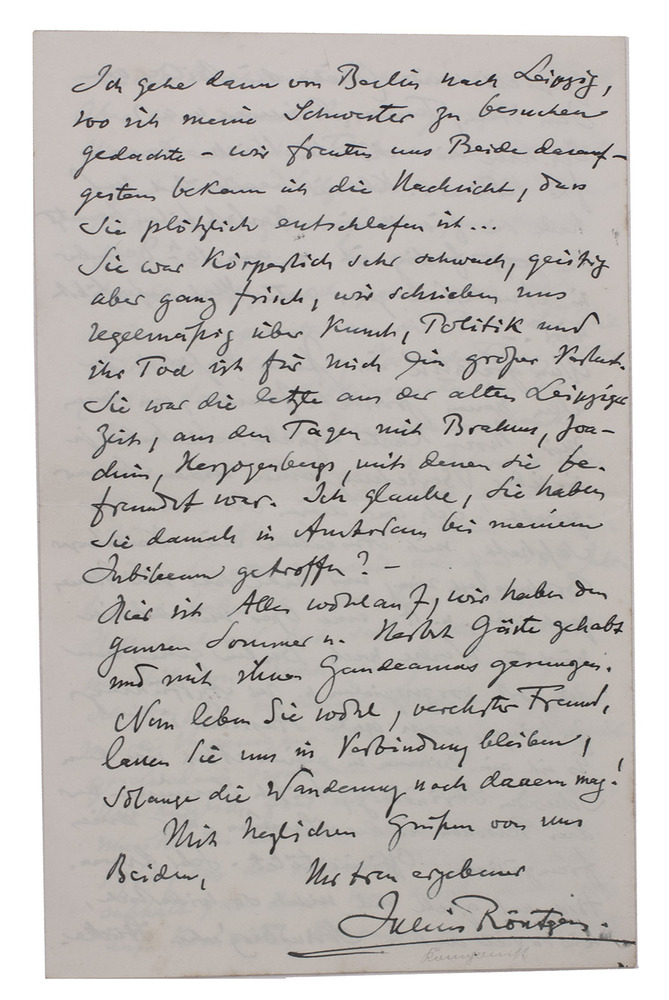 Ich gehe dann von Berlin nach Leipzig,
wo ich meine Schwester zu besuchen
gedachte – wir freuten uns Beide darauf –
gestern bekam ich die Nachricht, dass
Sie plötzlich entschlafen ist...
Sie war körperlich sehr schwach, geistig
aber ganz frisch, wir schrieben uns
regelmäßig über Kunst, Politik und
ihr Tod ist für mich ein großer Verlust.
Sie war die letzte aus der alten Leipziger
Zeit, aus den Tagen mit Brahms, Joa-
chim, Herzogenbergs, mit denen sie be-
freundet war. Ich glaube, Sie haben
Sie damals in Amsterdam bei meinem
Jubileum getroffen? –
Hier ist Alles wohlauf, wir haben den
ganzen Sommer u. Herbst Gäste gehabt
und mit ihnen Gaudeamus gesungen.
Nun leben Sie wohl, verehrter Freund,
lassen Sie uns in Verbindung bleiben,
solange die Wanderung noch dauern mag!
Mit herzlichen Grüßen von uns
Beiden, Ihr treu ergebener
Julius Röntgen.